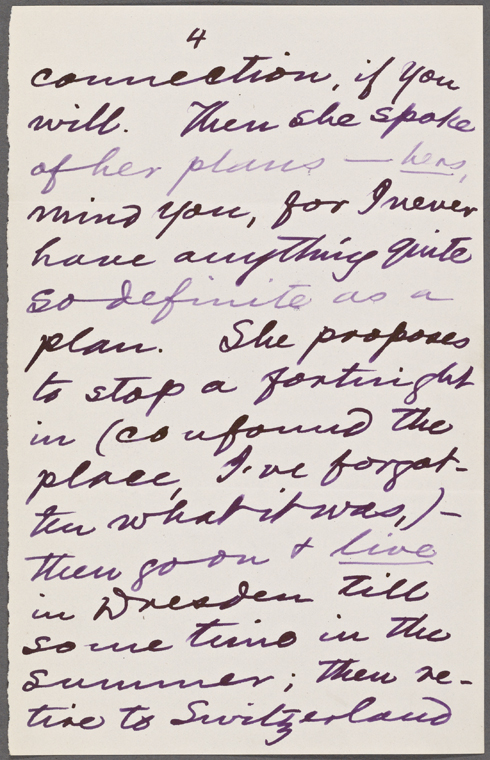 4
connection, if you
will. Then she spoke
of her plans — hers,
mind you, for I never
have anything quite
so definite as a
plan. She proposes
to stop a fortnight
in (confound the
place, I've forgot-
ten what it was,) —
then go on & live
in Dresden till
some time in the
summer; then re-
tire to Switzerland